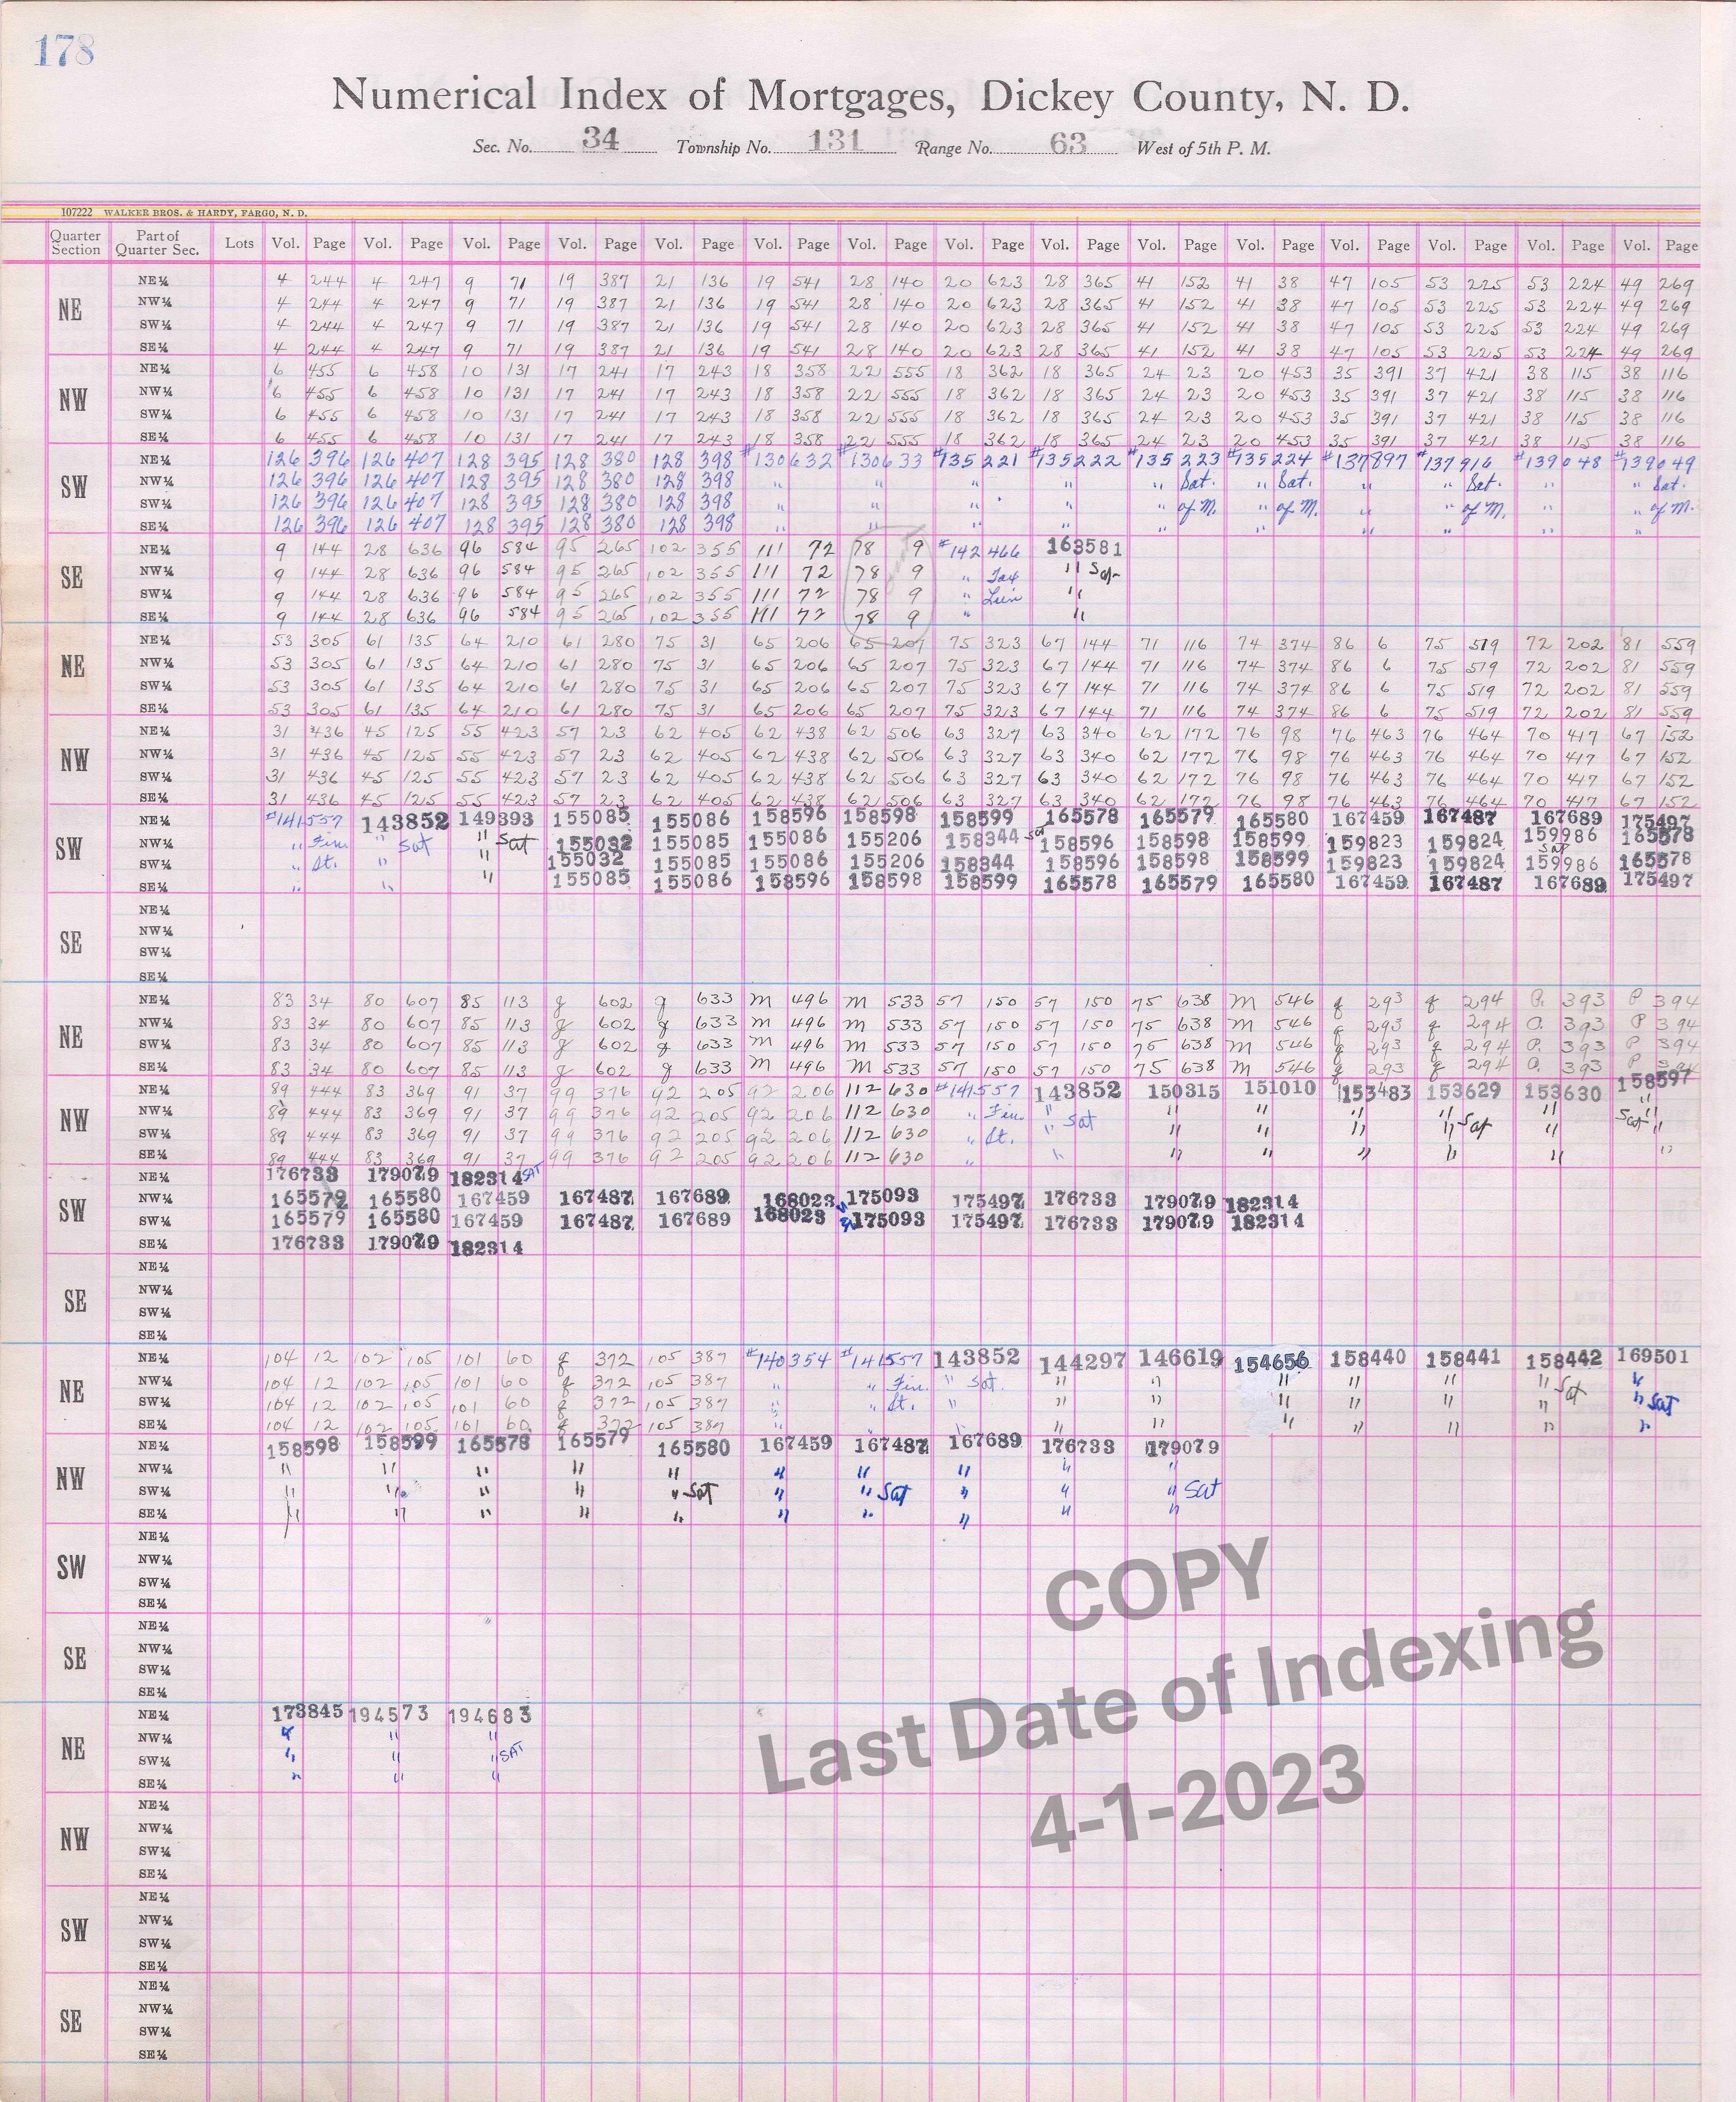 178
Numerical Index of Mortgages, Dickey County, N. D.
Sec. No. 34 Township No. 131 Range No. 63 West of 5th P. M.
107222 WALKER BROS. & HARDY, FARGO, N. D.
Quarter Section Part of Quarter Sec. Lots Vol. Page Vol. Page Vol. Page Vol. Page Vol. Page Vol. Page Vol. Page Vol. Page Vol. Page Vol. Page Vol. Page Vol. Page Vol. Page Vol. Page Vol. Page
NE NE¼ 4 244 4 247 9 71 19 387 21 136 19 541 28 140 20 623 28 365 41 152 41 38 47 105 53 225 53 224 49 269
NW¼ 4 244 4 247 9 71 19 387 21 136 19 541 28 140 20 623 28 365 41 152 41 38 47 105 53 225 53 224 49 269
SW¼ 4 244 4 247 9 71 19 387 21 136 19 541 28 140 20 623 28 365 41 152 41 38 47 105 53 225 53 224 49 269
SE¼ 4 244 4 247 9 71 19 387 21 136 19 541 28 140 20 623 28 365 41 152 41 38 47 105 53 225 53 224 49 269
NW NE¼ 6 455 6 458 10 131 17 241 17 243 18 358 22 555 18 362 18 365 24 23 20 453 35 391 37 421 38 115 38 116
NW¼ 6 455 6 458 10 131 17 241 17 243 18 358 22 555 18 362 18 365 24 23 20 453 35 391 37 421 38 115 38 116
SW¼ 6 455 6 458 10 131 17 241 17 243 18 358 22 555 18 362 18 365 24 23 20 453 35 391 37 421 38 115 38 116
SE¼ 6 455 6 458 10 131 17 241 17 243 18 358 22 555 18 362 18 365 24 23 20 453 35 391 37 421 38 115 38 116
SW NE¼ 126 396 126 407 128 395 128 380 128 398 #130632 #130633 #135221 #135222 #135223 #135224 #137897 #137916 #139048 #139049
NW¼ 126 396 126 407 128 395 128 380 128 398 " " " " " Sat. " Sat. " " Sat. " " Sat.
SW¼ 126 396 126 407 128 395 128 380 128 398 " " " " " of M. " of M. " " of M. " " of M.
SE¼ 126 396 126 407 128 395 128 380 128 398 " " " " " " " " " "
SE NE¼ 9 144 28 636 96 584 95 265 102 355 111 72 78 9 #142466 163581
NW¼ 9 144 28 636 96 584 95 265 102 355 111 72 78 9 " Tax " Sat
SW¼ 9 144 28 636 96 584 95 265 102 355 111 72 78 9 " Lien "
SE¼ 9 144 28 636 96 584 95 265 102 355 111 72 78 9 " "
NE NE¼ 53 305 61 135 64 210 61 280 75 31 65 206 65 207 75 323 67 144 71 116 74 374 86 6 75 519 72 202 81 559
NW¼ 53 305 61 135 64 210 61 280 75 31 65 206 65 207 75 323 67 144 71 116 74 374 86 6 75 519 72 202 81 559
SW¼ 53 305 61 135 64 210 61 280 75 31 65 206 65 207 75 323 67 144 71 116 74 374 86 6 75 519 72 202 81 559
SE¼ 53 305 61 135 64 210 61 280 75 31 65 206 65 207 75 323 67 144 71 116 74 374 86 6 75 519 72 202 81 559
NW NE¼ 31 436 45 125 55 423 57 23 62 405 62 438 62 506 63 327 63 340 62 172 76 98 76 463 76 464 70 417 67 152
NW¼ 31 436 45 125 55 423 57 23 62 405 62 438 62 506 63 327 63 340 62 172 76 98 76 463 76 464 70 417 67 152
SW¼ 31 436 45 125 55 423 57 23 62 405 62 438 62 506 63 327 63 340 62 172 76 98 76 463 76 464 70 417 67 152
SE¼ 31 436 45 125 55 423 57 23 62 405 62 438 62 506 63 327 63 340 62 172 76 98 76 463 76 464 70 417 67 152
SW NE¼ #141557 143852 149393 155085 155086 158596 158598 158599 165578 165579 165580 167459 167487 167689 175497
NW¼ " Fin. " Sat " Sat 155032 155085 155086 155206 158344 Sat 158596 158598 158599 159823 159824 159986 Sat 165578
SW¼ " St. " " 155032 155085 155086 155206 158344 158596 158598 158599 159823 159824 159986 165578
SE¼ " " " 155085 155086 158596 158598 158599 165578 165579 165580 167459 167487 167689 175497
SE NE¼
NW¼
SW¼
SE¼
NE NE¼ 83 34 80 607 85 113 g 602 g 633 M 496 M 533 57 150 57 150 75 638 M 546 g 293 g 294 P. 393 P 394
NW¼ 83 34 80 607 85 113 g 602 g 633 M 496 M 533 57 150 57 150 75 638 M 546 g 293 g 294 P. 393 P 394
SW¼ 83 34 80 607 85 113 g 602 g 633 M 496 M 533 57 150 57 150 75 638 M 546 g 293 g 294 P. 393 P 394
SE¼ 83 34 80 607 85 113 g 602 g 633 M 496 M 533 57 150 57 150 75 638 M 546 g 293 g 294 P. 393 P 394
NW NE¼ 89 444 83 369 91 37 99 376 92 205 92 206 112 630 #141557 143852 150315 151010 153483 153629 153630 158597
NW¼ 89 444 83 369 91 37 99 376 92 205 92 206 112 630 " Fin. " Sat " " " " Sat " " Sat
SW¼ 89 444 83 369 91 37 99 376 92 205 92 206 112 630 " St. " " " " " " "
SE¼ 89 444 83 369 91 37 99 376 92 205 92 206 112 630 " " " " " " " "
SW NE¼ 176733 179079 182314 SAT
NW¼ 165579 165580 167459 167487 167689 168023 175093 175497 176733 179079 182314
SW¼ 165579 165580 167459 167487 167689 168023 175093 175497 176733 179079 182314
SE¼ 176733 179079 182314
SE NE¼
NW¼
SW¼
SE¼
NE NE¼ 104 12 102 105 101 60 g 372 105 387 #140354 #141557 143852 144297 146619 154656 158440 158441 158442 169501
NW¼ 104 12 102 105 101 60 g 372 105 387 " " Fin. " Sat. " " " " " " Sat "
SW¼ 104 12 102 105 101 60 g 372 105 387 " " St. " " " " " " " " Sat
SE¼ 104 12 102 105 101 60 g 372 105 387 " " " " " " " " " "
NW NE¼ 158598 158599 165578 165579 165580 167459 167487 167689 176733 179079
NW¼ " " " " " " " " " "
SW¼ " " " " " Sat " " Sat " " " Sat
SE¼ " " " " " " " " " "
SW NE¼
NW¼
SW¼
SE¼
SE NE¼
NW¼
SW¼
SE¼
NE NE¼ 173845 194573 194683
NW¼ " " "
SW¼ " " " SAT
SE¼ " " "
NW NE¼
NW¼
SW¼
SE¼
SW NE¼
NW¼
SW¼
SE¼
SE NE¼
NW¼
SW¼
SE¼
COPY
Last Date of Indexing
4-1-2023